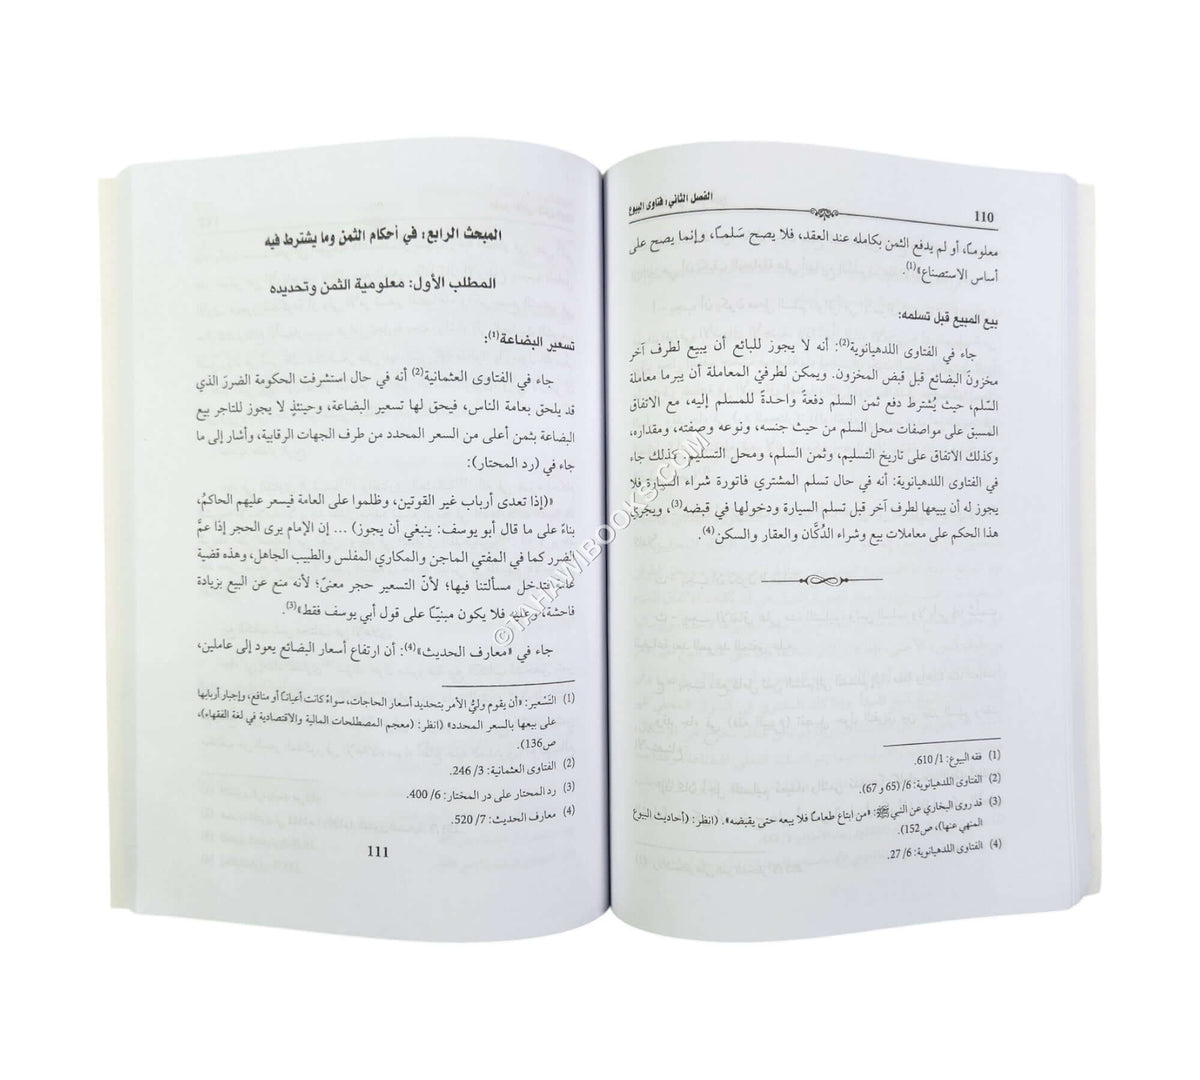 110
الفصل الثاني: فتاوى البيوع
معلومـًا، أو لم يدفع الثمن بكامله عند العقد، فلا يصح سَلمـًا، وإنما يصح على
أساس الاستصناع»(1).
بيع المبيع قبل تسلمه:
جاء في الفتاوى اللدهيانوية(2): أنه لا يجوز للبائع أن يبيع لطرف آخر
مخزونَ البضائع قبل قبض المخزون. ويمكن لطرفيْ المعاملة أن يبرما معاملة
السّلم، حيث يُشترط دفع ثمن السلم دفعةً واحـدةً للمسلم إليه، مع الاتفاق
المسبق على مواصفات محل السلم من حيث جنسه، ونوعه وصفته، ومقداره،
وكذلك الاتفاق على تاريخ التسليم، وثمن السلم، ومحل التسليم. كذلك جاء
في الفتاوى اللدهيانوية: أنه في حال تسلم المشتري فاتورة شراء السيارة فلا
يجوز له أن يبيعها لطرف آخر قبل تسلم السيارة ودخولها في قبضه(3)، ويجري
هذا الحكم على معاملات بيع وشراء الدُّكَّان والعقار والسكن(4).
(1) فقه البيوع: 1/ 610.
(2) الفتاوى اللدهيانوية: 6/ (65 و 67).
(3) قد روى البخاري عن النبي ﷺ: «من ابتاع طعامـًا فلا يبعه حتى يقبضه». (انظر: (أحاديث البيوع
المنهي عنها)، ص152).
(4) الفتاوى اللدهيانوية: 6/ 27.
المبحث الرابع: في أحكام الثمن وما يشترط فيه
المطلب الأول: معلومية الثمن وتحديده
تسعير البضاعة(1):
جاء في الفتاوى العثمانية(2) أنه في حال استشرفت الحكومة الضررَ الذي
قد يلحق بعامة الناس، فيحق لها تسعير البضاعة، وحينئذٍ لا يجوز للتاجر بيع
البضاعة بثمن أعلى من السعر المحدد من طرف الجهات الرقابية، وأشار إلى ما
جاء في (رد المحتار):
«(إذا تعدى أرباب غير القوتين، وظلموا على العامة فيسعر عليهم الحاكمُ،
بناءً على ما قال أبو يوسف: ينبغي أن يجوز) ... إن الإمام يرى الحجر إذا عمَّ
الضرر كما في المفتي الماجن والمكاري المفلس والطبيب الجاهل، وهذه قضية
عامة فتدخل مسألتنا فيها؛ لأنّ التسعير حجر معنىً؛ لأنه منع عن البيع بزيادة
فاحشة، وعليه فلا يكون مبنيـًا على قول أبي يوسف فقط»(3).
جاء في «معارف الحديث»(4): أن ارتفاع أسعار البضائع يعود إلى عاملين،
(1) التّسْعير: «أن يقوم وليُّ الأمر بتحديد أسعار الحاجات، سواءٌ كانت أعيانـًا أو منافع، وإجبار أربابها
على بيعها بالسعر المحدد» (انظر: (معجم المصطلحات المالية والاقتصادية في لغة الفقهاء)،
ص136).
(2) الفتاوى العثمانية: 3/ 246.
(3) رد المحتار على در المختار: 6/ 400.
(4) معارف الحديث: 7/ 520.
111
©TAHAWIBOOKS.COM